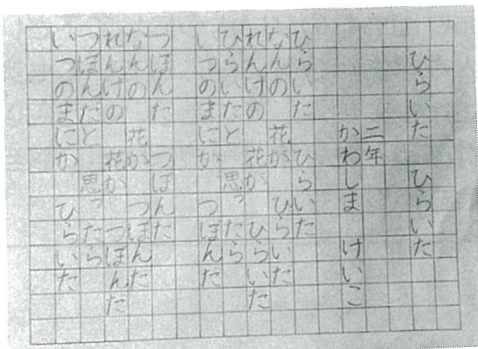 ひらいた　ひらいた
二年
かわしま　けいこ
ひらいた　ひらいた
なんの花が　ひらいた
れんげの花が　ひらいた
ひらいたと思ったら
いつのまにか　つぼんだ
つぼんだ　つぼんだ
なんの花が　つぼんだ
れんげの花が　つぼんだ
つぼんだと思ったら
いつのまにか　ひらいた